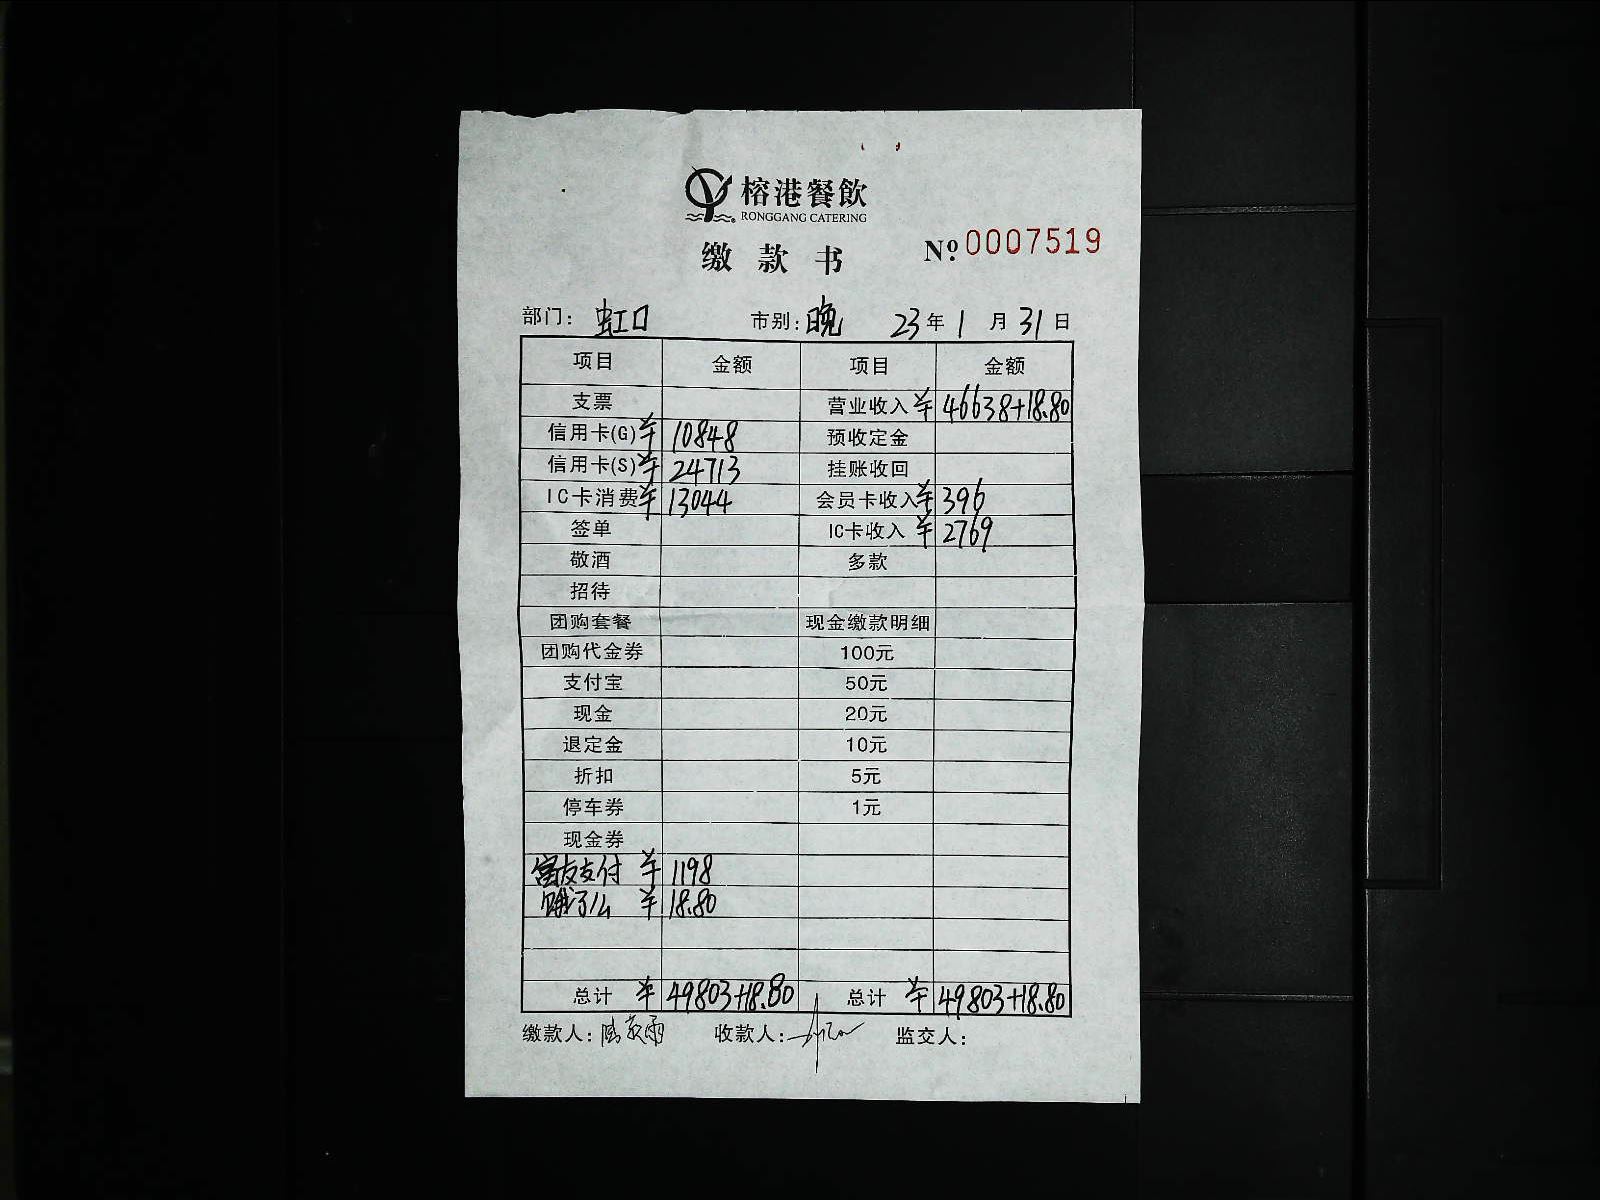 榕港餐飲
RONGGANG CATERING
缴款书 №0007519
部门：虹口 市别：晚 23年1月31日
项目 金额 项目 金额
支票 营业收入 ¥46638+18.80
信用卡(G) ¥10848 预收定金
信用卡(S) ¥24713 挂账收回
IC卡消费 ¥13044 会员卡收入 ¥396
签单 IC卡收入 ¥2769
敬酒 多款
招待
团购套餐 现金缴款明细
团购代金券 100元
支付宝 50元
现金 20元
退定金 10元
折扣 5元
停车券 1元
现金券
富友支付 ¥1198
饿了么 ¥18.80
总计 ¥49803+18.80 总计 ¥49803+18.80
缴款人： 收款人： 监交人：